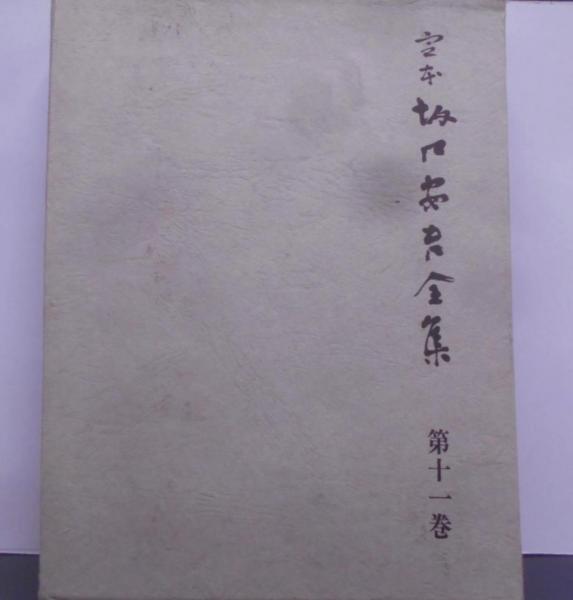 定本坂口安吾全集 第十一巻